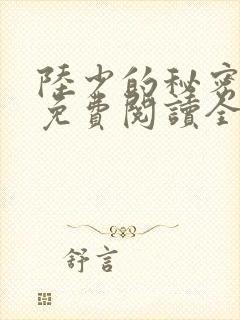 陸少的秘密
免費閱讀全
舒言